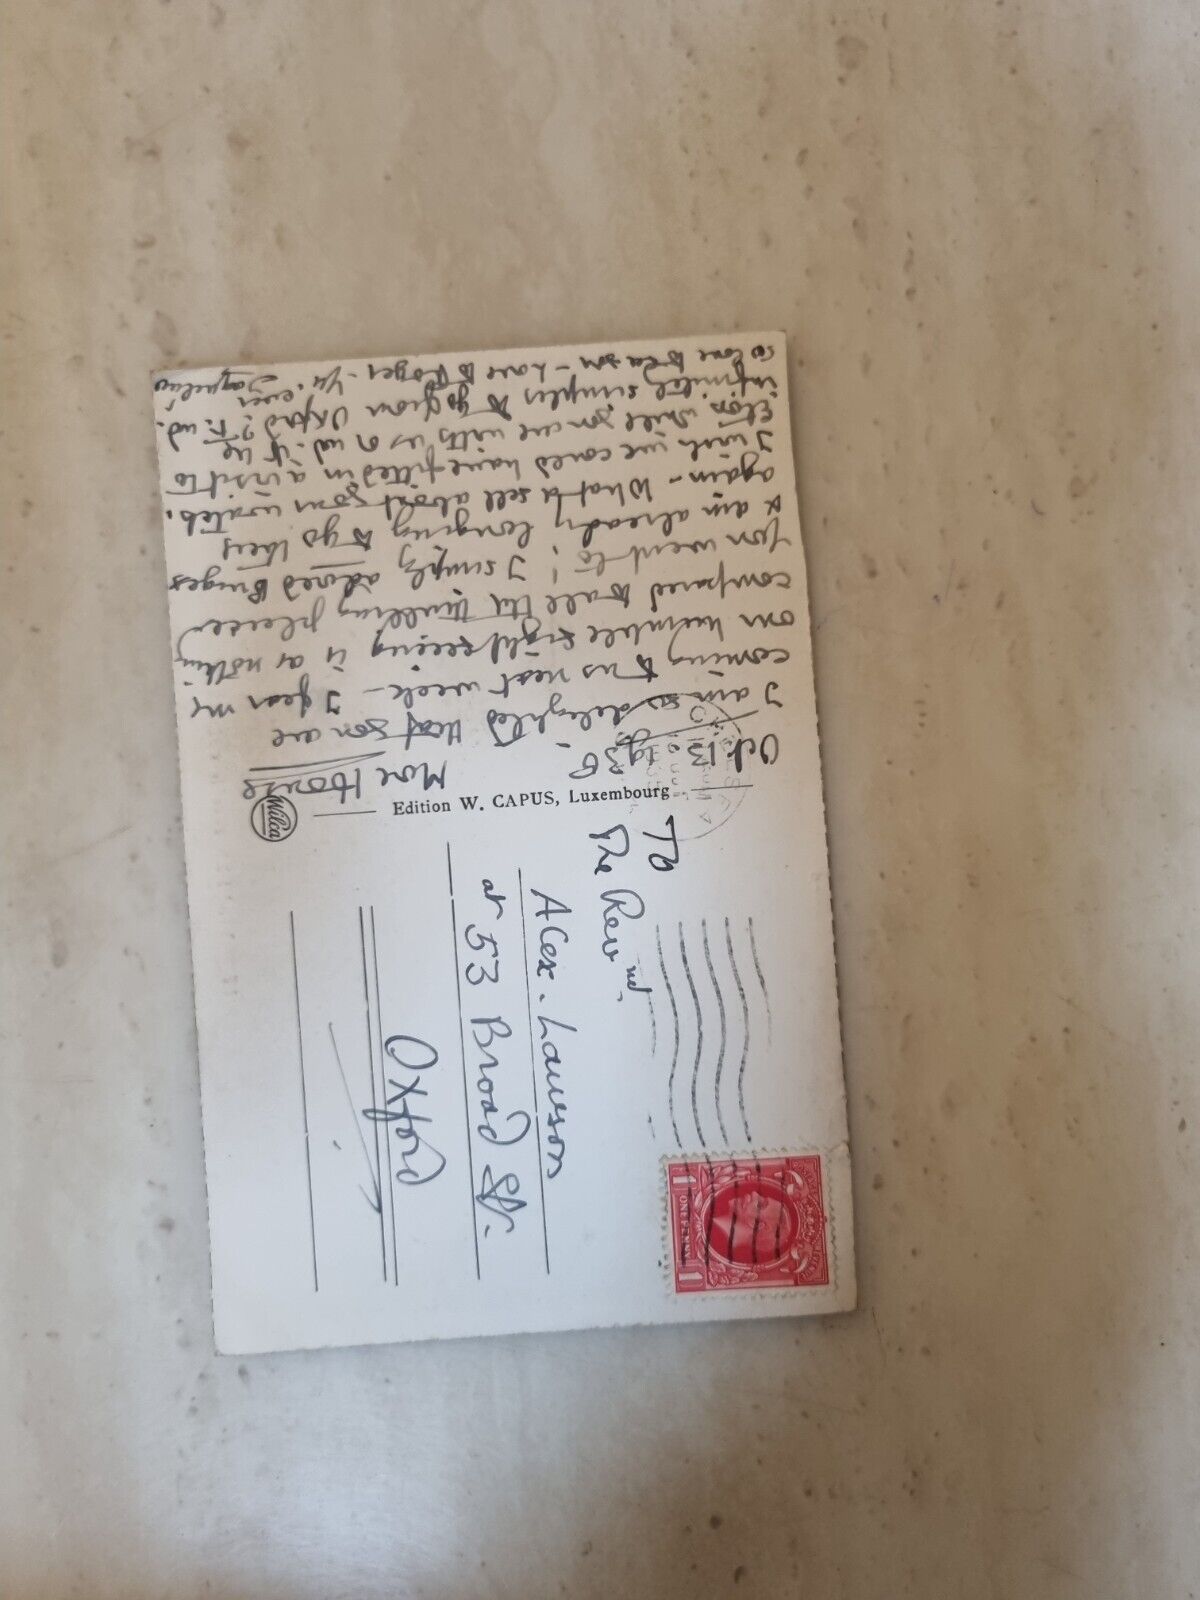 More House
Oct. 13. 1936
I am so delighted that you are
coming to us next week - I fear me
our humble sightseeing is as nothing
compared to all the thrilling places
you went to! I simply adored Bruges
& am already longing to go there
again - What a sell about your watch.
I wish we could have fitted in a visit to
Eton while you are with us
infinitely simpler to go from Oxford?
so love to - Love to Roger - Yrs. ever
Edition W. CAPUS, Luxembourg
Wilca
To
The Revnd.
Alex. Lawson
at 53 Broad St.
Oxford
1 ONE PENNY 1